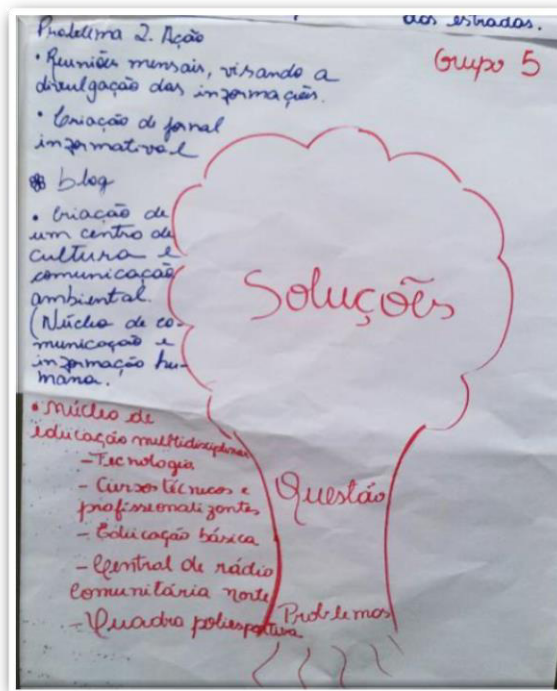 dos estradas.
Grupo 5
Problema 2. Ação
• Reuniões mensais, visando a
divulgação das informações.
• Criação de jornal
informativo e
blog
• Criação de
um centro de
cultura e
comunicação
ambiental.
(Núcleo de co-
municação e
informação hu-
mana.
• Núcleo de
educação multidisciplinar
- Tecnologia
- Cursos técnicos e
profissionalizantes
- Educação básica
- Central de rádio
comunitária norte
- Quadra poliesportiva
Soluções
Questão
Problemas